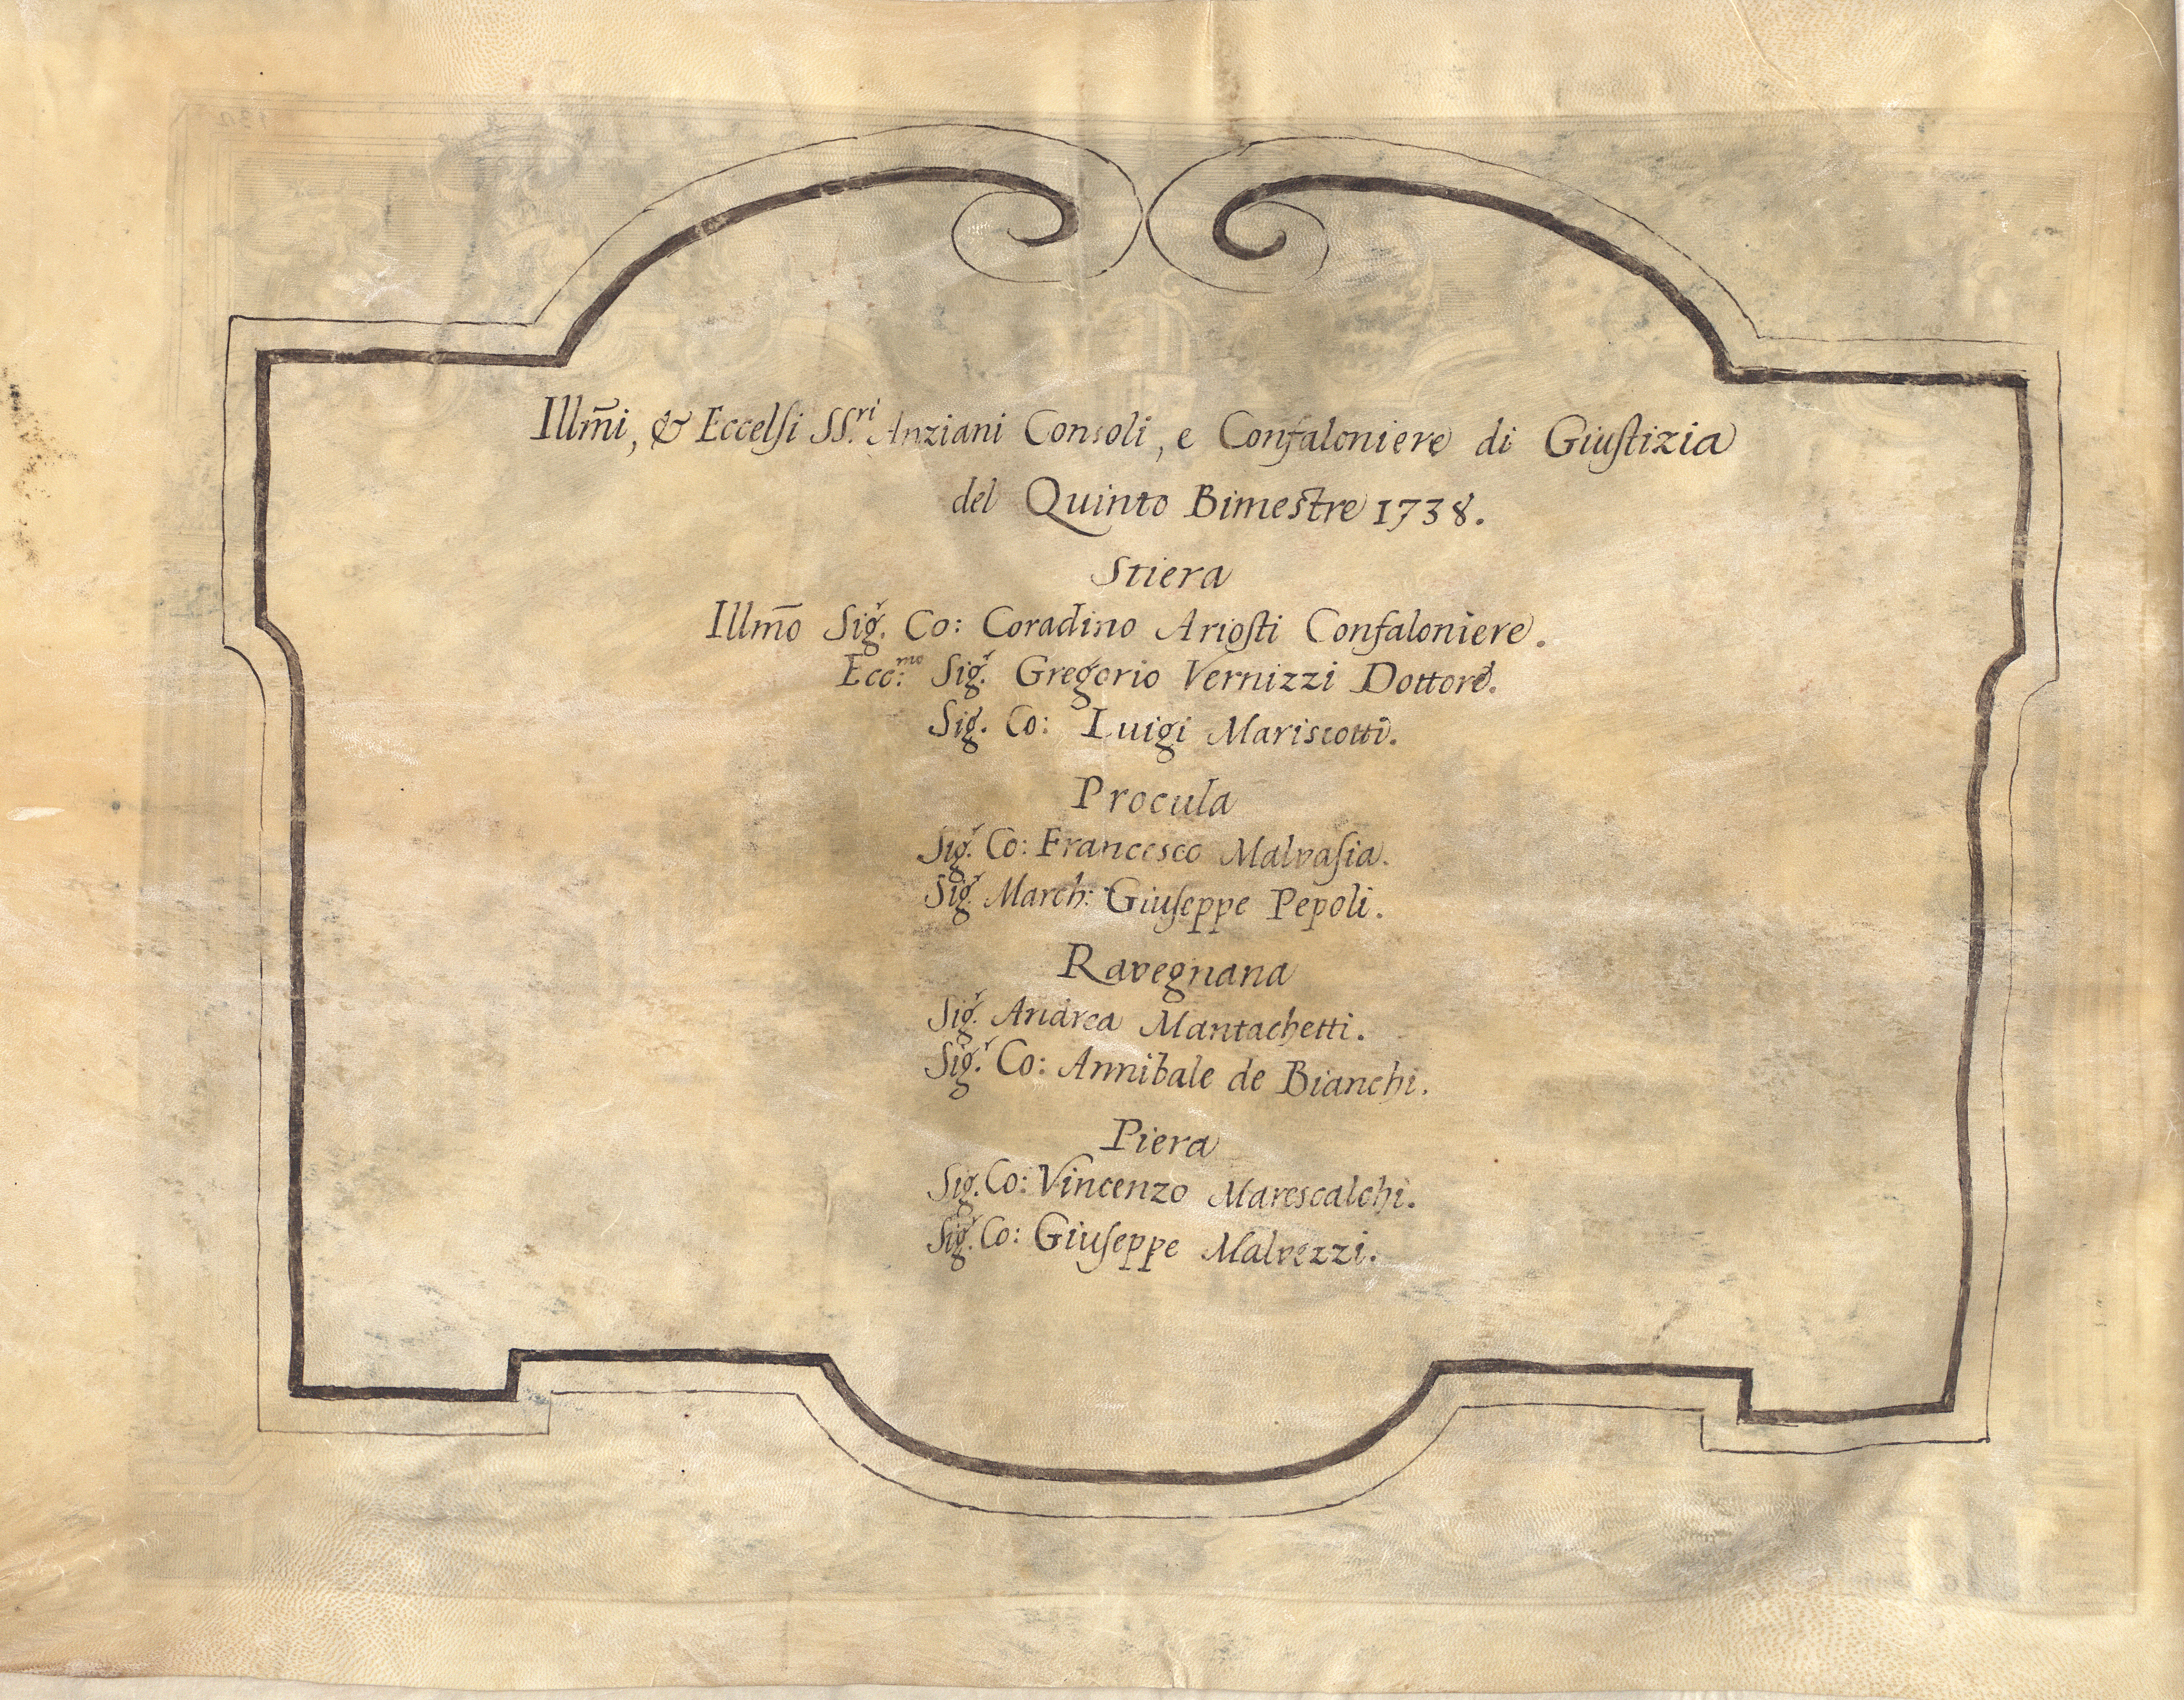 Illm̃i, & Eccelsi SS.ri Anziani Consoli, e Confaloniere di Giustizia
del Quinto Bimestre 1738.
Stiera
Illm̃o Sig.r Co: Coradino Ariosti Confaloniere.
Ecc:mo Sig.r Gregorio Vernizzi Dottore.
Sig.r Co: Luigi Mariscotti.
Procula
Sig.r Co: Francesco Malvasia.
Sig.r March: Giuseppe Pepoli.
Ravegnana
Sig.r Andrea Mantachetti.
Sig.r Co: Annibale de Bianchi.
Piera
Sig.r Co: Vincenzo Marescalchi.
Sig.r Co: Giuseppe Malvezzi.